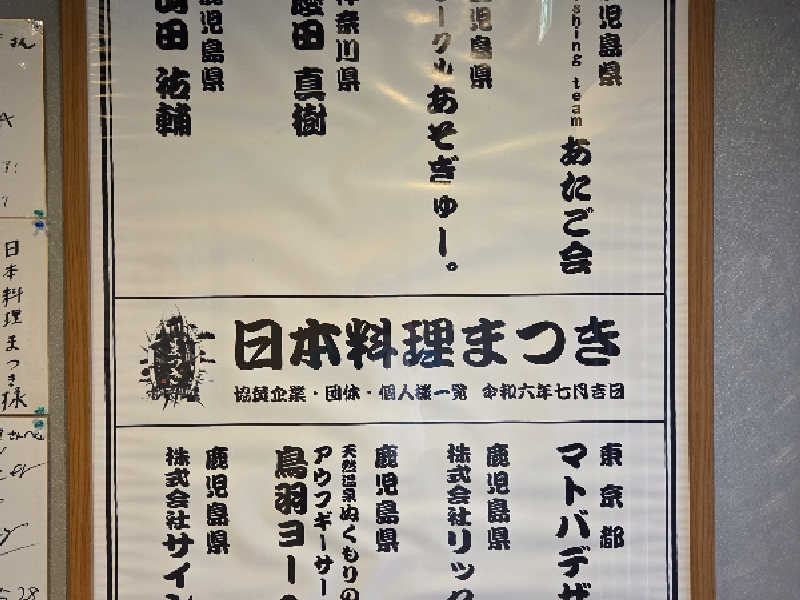 鹿児島県
shing team あたご会
鹿児島県
ークル あそぎゅー。
神奈川県
真樹
鹿児島県
田 祐輔
日本料理まつき
協賛企業・団体・個人様一覧 令和六年七月吉日
東京都
マトバデザ
鹿児島県
株式会社リック
鹿児島県
天然温泉ぬくもりの
アウフギーサー
鳥羽ヨー
鹿児島県
株式会社サイン
日本料理まつき様